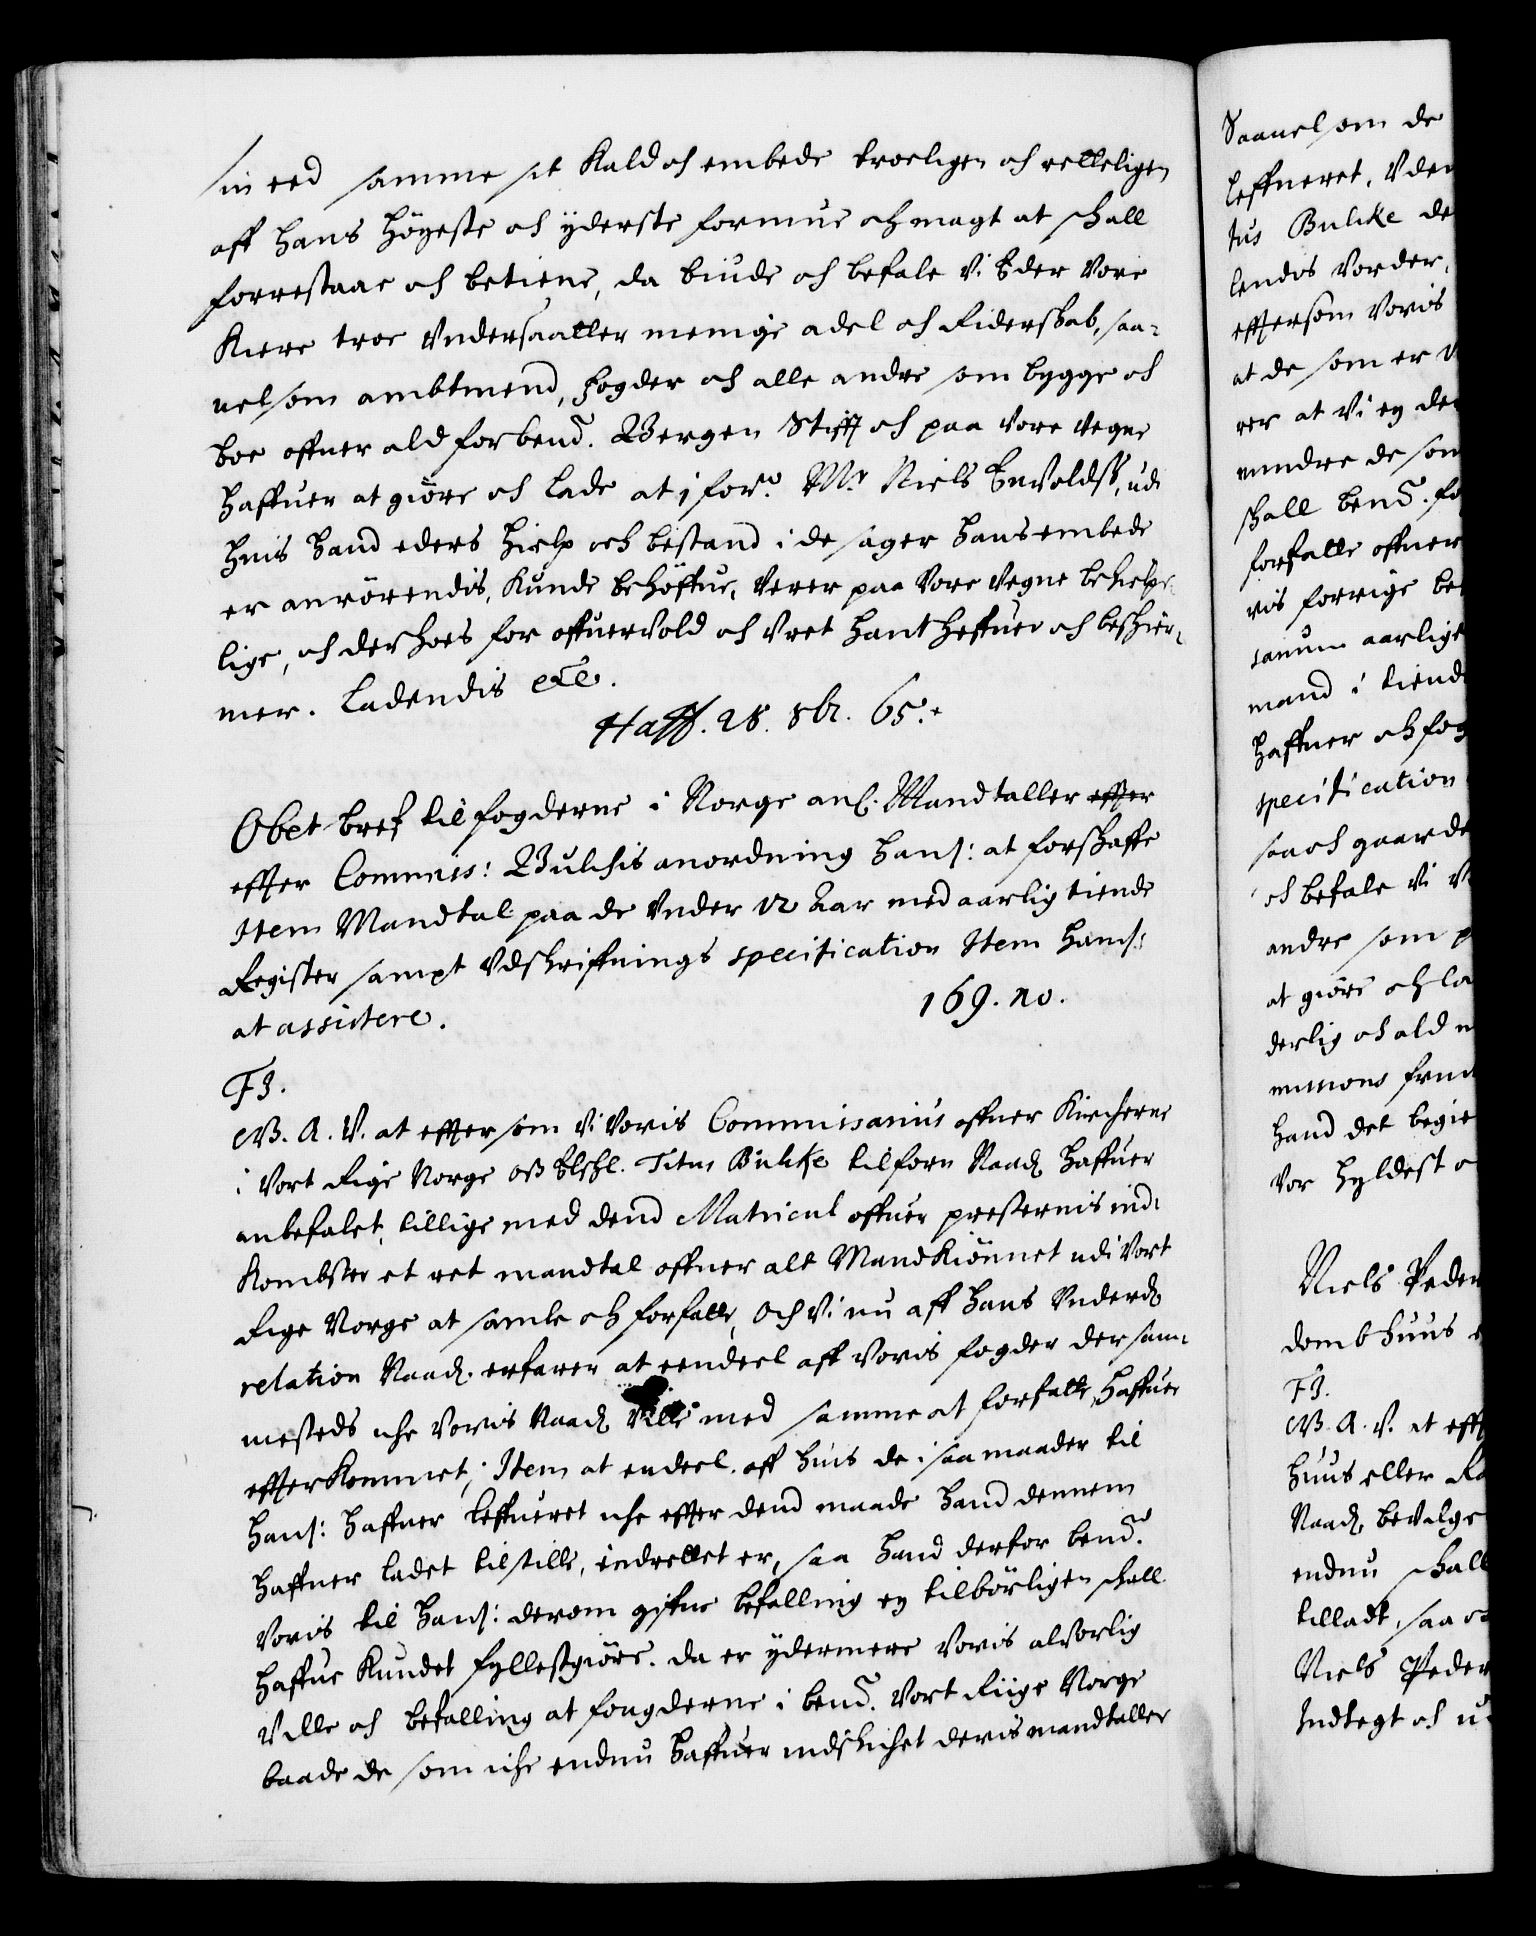 sin eed samme sit Kald och embede troeligen och retteligen
aff hans högeste och yderste formue och magt at schall
forrestaae och betiene, da biude och befale Vi Eder Vore
Kiere troe Vndersaatter menige adel och Riderschab, saa-
uelsom ambtmend, fogder och alle andre som bygge och
boe offuer ald forbend. Bergen Stifft och paa Vore Vegne
haffuer at giöre och lade at i forne Mr. Niels Enuoldss, udi
huis hand eders hielp och bestand i de sager hans embede
er anrörendis, Kunde behöffue, Verer paa Vore Vegne behielpe-
lige, och derhoes for offueruold och Vret hanthefftuer och beschier-
mer. Ladendis etc.
Haff. 28. 8br. 65.
Obet bref til fogderne i Norge anl. Mandtaller effter
effter Commis: Bulchis anordning hans: at forschaffe
Item Mandtal paa de Vnder 12 Aar med aarlig tiende
Register sampt Vdschriffnings specification Item hans:
at assistere.
169. no.
F3.
G. A. V. at effter som Vi Voris Commissarius offuer Kircherne
i Vort Rige Norge oss Elschl. Titus Bulche tilforn Naad. haffuer
anbefalet, tillige med dend Matricul offuer presternis ind-
Kombster et ret mandtal offuer alt MandKiönnet udi Vort
Rige Norge at samle och forfatte, Och Vi nu aff hans Underd.
relation Naad. erfarer at eendeel aff Voris fogder der sam-
mesteds iche Voris Naad. Ville med samme at forfatte, haffuer
effterKommet; Item at endeel aff huis de i saa maader til
hans: haffuer leffueret iche effter dend maade hand dennem
haffuer ladet tilstille, indrettet er, saa hand derfor bend.
Voris til hans: derom gifne befalling ey tilbörligen schall
haffue Kundet fyllestgiöre. da er ydermere Voris aluorlig
Ville och befalling at fougderne i bend. Vort Riige Norge
baade de som iche endnu haffuer indschichet deris mandtaller
Saauelsom de
leffueret, Vden
tus Bulche de
lendis Vorder,
effersom Voris
at de som er
rer at Vi ey de
mindre de som
schall bend. fo
forfatte offuer
ris forrige be
sarium aarlige
mand i tiend
haffuer och fog
specification
saa och gaarde
och befale Vi V
andre som p
at giöre och la
derlig och ald
missions frem
hand det begie
Vor hyldest o
Niels Peder
domb huus
F3.
G. A. V. at eff
huus eller Ra
Naad. beuilge
endnu schall
tilladt, saa o
Niels Peder
Indtegt och u